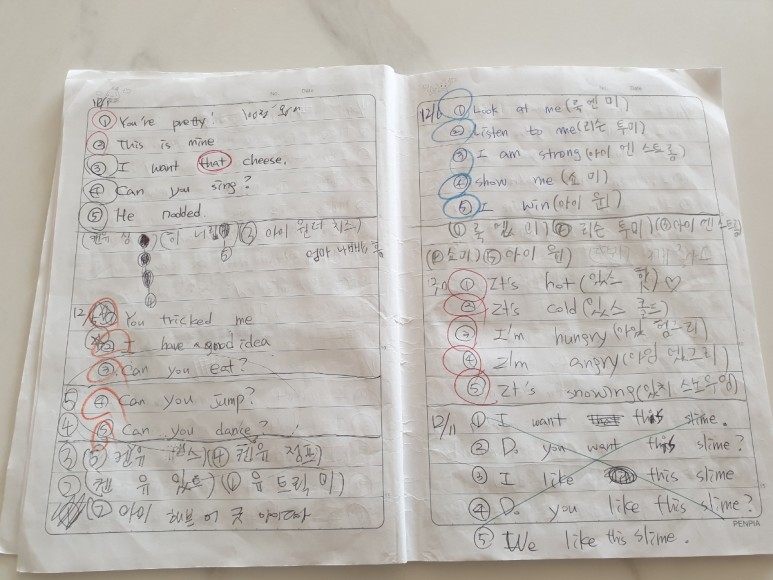 12/1
① You're pretty!
② This is mine
③ I want that cheese.
④ Can you sing?
⑤ He nodded.
③ 아이 원더 치즈)
엄마
12/
You tricked me
I have a good idea
③ Can you eat?
5 ④ Can you jump?
4 ⑤ Can you dance?
3 (⑤ 캔유 댄스)(④ 캔유 점프)
캔 유 있트)(① 유 트릭 미)
아이 해브 어 굿 아이디어
12/6 ① Look at me(룩 엔 미)
② Listen to me(리슨 투미)
③ I am strong(아이 엔 스트롱)
④ show me(쇼 미)
⑤ I win(아이 윈)
(① 룩 엣 미)(② 리슨 투미)(③아이 엔 스트롱
쇼미)(⑤ 아이 윈)
① It's hot(잇스 핫)♡
② It's cold(잇스 콜드)
③ I'm hungry(아임 헝그리)
④ I'm angry(아임 앵그리)
⑤ It's snowing(잇치 스노우잉)
12/11 ① I want that this slime.
② Do you want this slime?
③ I like this slime
④ Do you like this slime?
PENPIA
⑤ We like this slime.